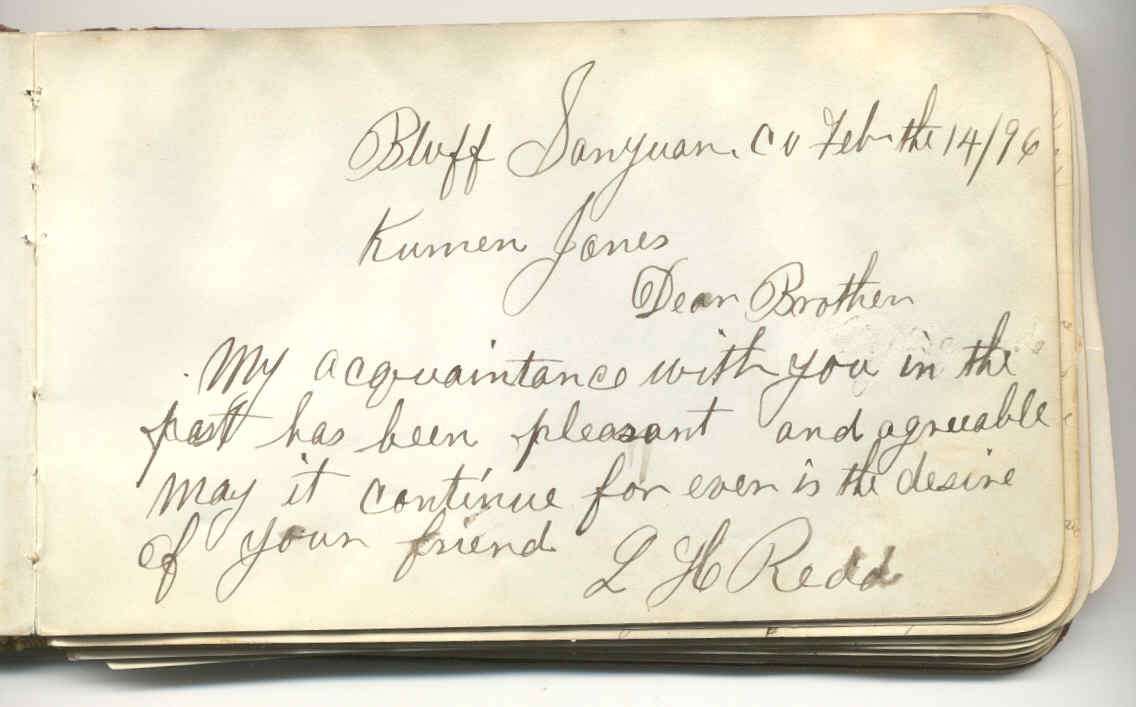 Bluff Sanjuan. Co Feb the 14/96
Kumen Jones
Dear Brother
My acquaintance with you in the
past has been pleasant and agreeable
may it continue for ever is the desire
of your friend L H Redd